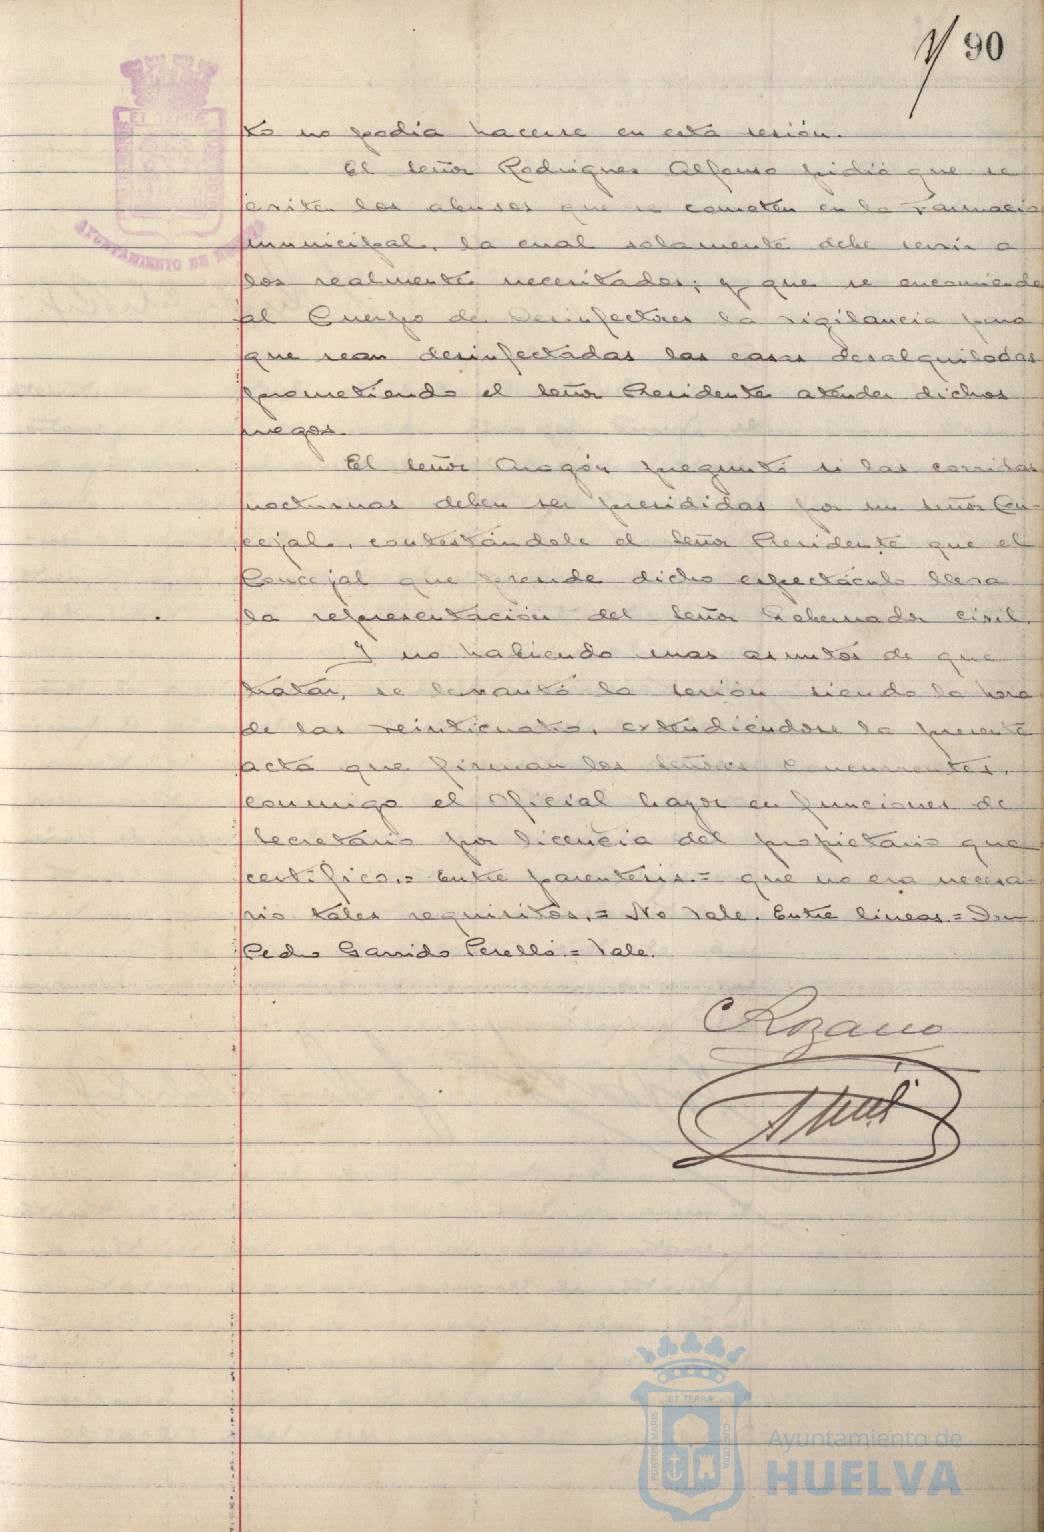 90
to no podia hacerse en esta sesión.
El señor Rodriguez Alfonso pidió que se
eviten los abusos que se cometen en la Farmacia
municipal, la cual solamente debe servir a
los realmente necesitados; y que se encomiende
al Cuerpo de Desinfectores la vigilancia para
que sean desinfectadas las casas desalquiladas
prometiendo el señor Presidente atender dichos
ruegos.
El señor Aragón preguntó si las corridas
nocturnas deben ser presididas por un señor Con-
cejal, contestándole el señor Presidente que el
Concejal que preside dicho espectáculo lleva
la representación del señor Gobernador civil.
Y no habiendo mas asuntos de que
tratar, se levantó la sesión siendo la hora
de las veinticuatro, extendiéndose la presente
acta que firman los señores concurrentes,
conmigo el oficial mayor en funciones de
Secretario por licencia del propietario que
certifico.= Entre parentesis.= que no era necesa-
rio tales requisitos.= No vale. Entre lineas.= Don
Pedro Garrido Perelló.= Vale.
ET TERRÆ
AYUNTAMIENTO DE
ET TERRÆ
PORTUS MARIS
CUSTODIA
Ayuntamiento de
HUELVA